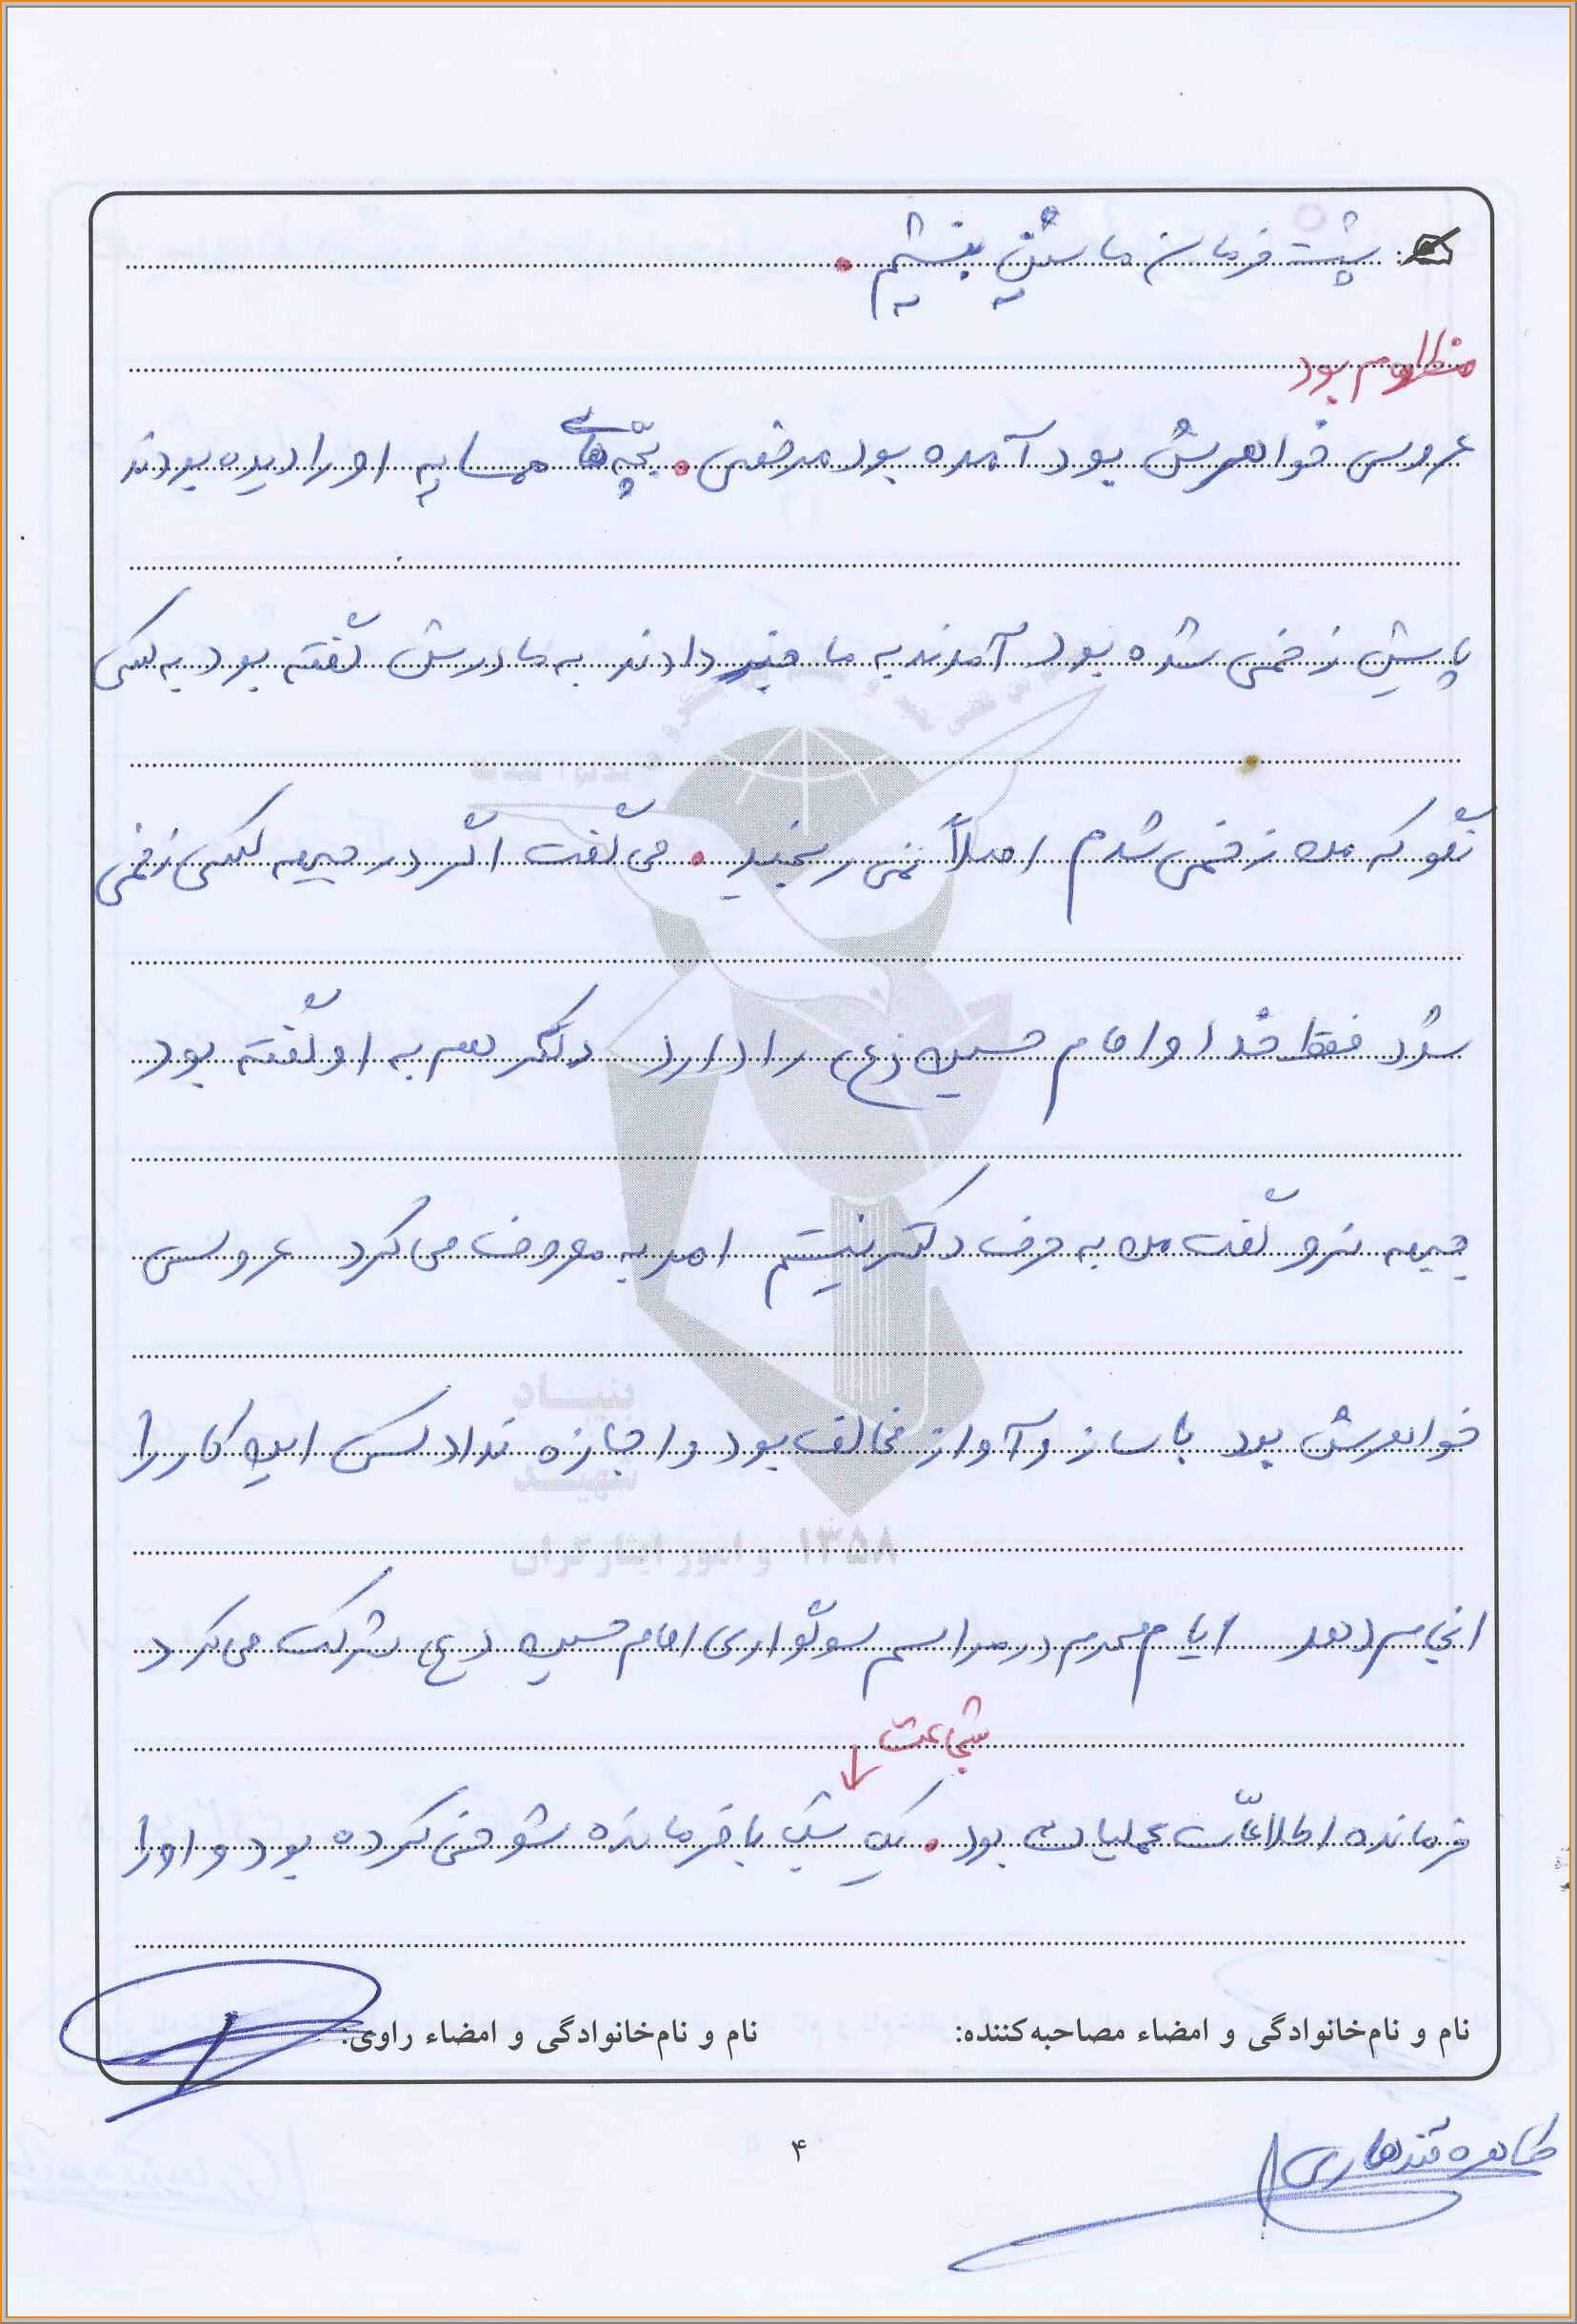 پشت فرمان ماشین بنشیم.
مظلوم بود
عروسی خواهرش بود آمده بود مرخصی. بچّه‌های همسایه او را دیده بودند
پایش زخمی شده بود آمدند به ما خبر دادند به مادرش گفته بود به کسی
نگو که من زخمی شدم اصلاً نمی رنجید. می گفت اگر در جبهه کسی زخمی
شود فقط خدا و امام حسین (ع) را دارد دکتر هم به او گفته بود
جبهه نرو گفت من به حرف دکتر نیستم امر به معروف می کرد عروسی
خواهرش بود با ساز و آواز مخالف بود و اجازه نداد کسی این کار را
انجام دهد ایام محرم در مراسم سوگواری امام حسین (ع) شرکت می کرد
شجاعت
فرمانده اطلاعّات عملیات بود. یک شب با فرمانده شوخی کرده بود و او را
بنیاد
شهید
۱۳۵۸ و امور ایثارگران
نام و نام‌خانوادگی و امضاء مصاحبه‌کننده: نام و نام‌خانوادگی و امضاء راوی:
طاهره قندهاری
۴